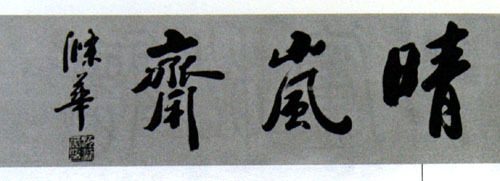 晴嵐齋
滌華